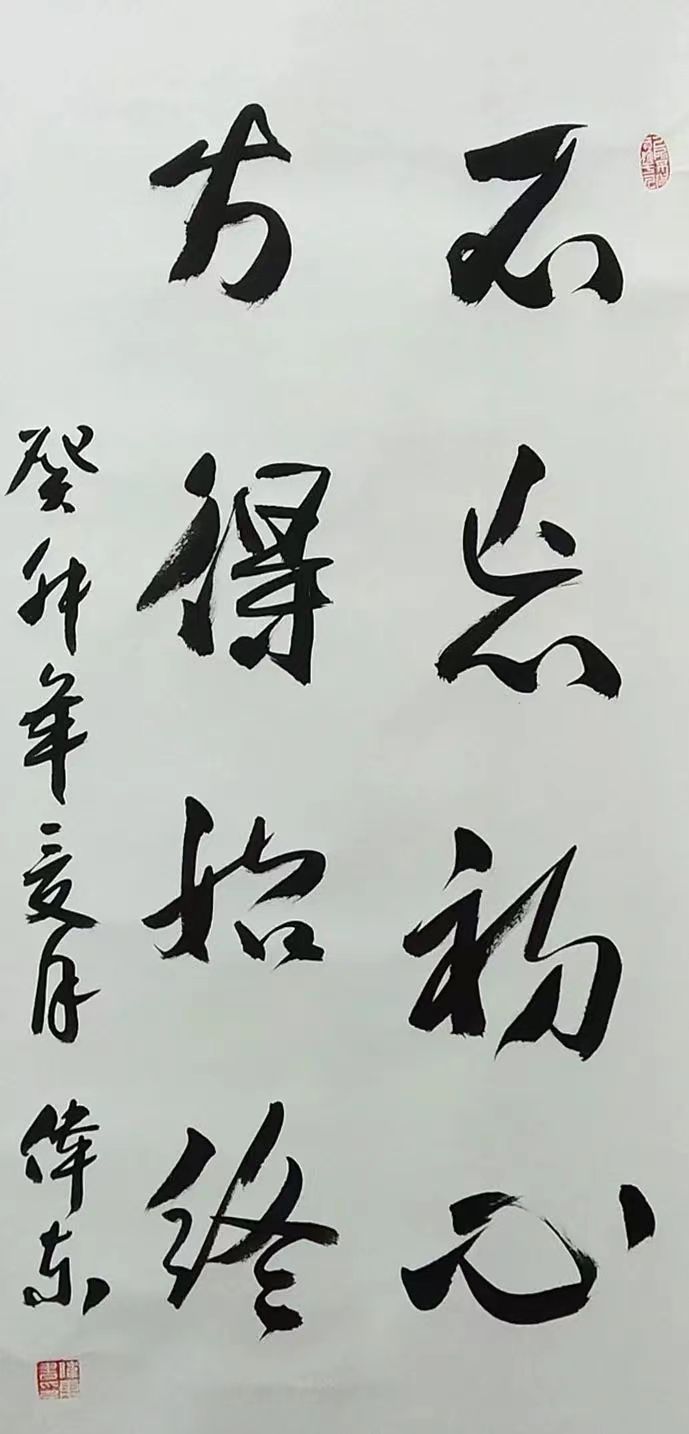 不忘初心
方得始终
癸卯年夏月 偉东